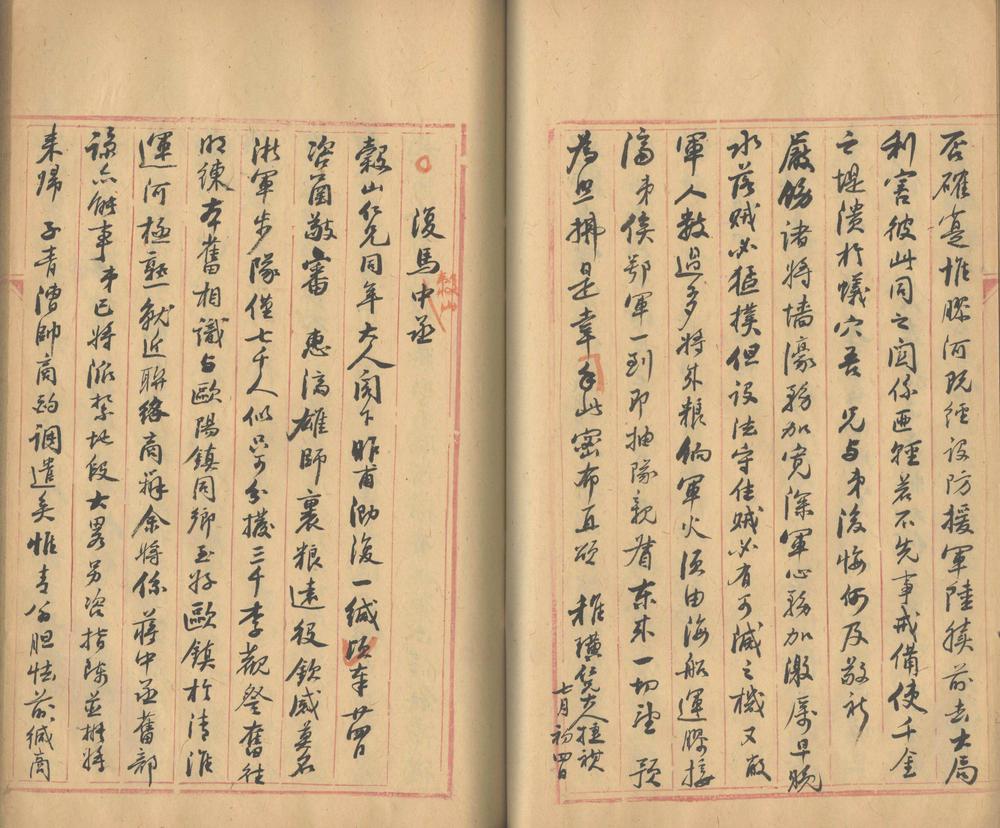 否確寔惟膠河既經設防援軍陸續前去大局
利害彼此同之関係匪輕若不先事戒備使千金
之堤潰於蟻穴吾 兄与弟後悔何及敬祈
嚴飭諸將墻濠務加寬深軍心務加激厲早晚
水落賊必猛撲但設法守住賊必有可滅之機又敝
軍人數過多將來粮餉軍火須由海船運膠接
濟弟俟鄂軍一到即抽隊親督東來一切望 預
為照拂是幸手此密布敬頌 稚璜仁兄大人捷禊
七月初四日
復馬中丞
穀山
穀山仁兄同年大人閣下昨甫泐復一緘頃奉廿四日
咨函敬審 惠濟雄師裹粮遠役欽感莫名
淞軍步隊僅七千人似只可分撥三千李觀詧舊徒
明練本舊相識与歐陽鎮同鄉至好歐鎮於清淮
運河極熟就近聯絡商辦余將係蔣中丞舊部
諒亦解事弟已將派紮地段大畧另咨指陳並檄將
來歸 子青漕帥商酌調遣矣惟青翁胆怯前緘商